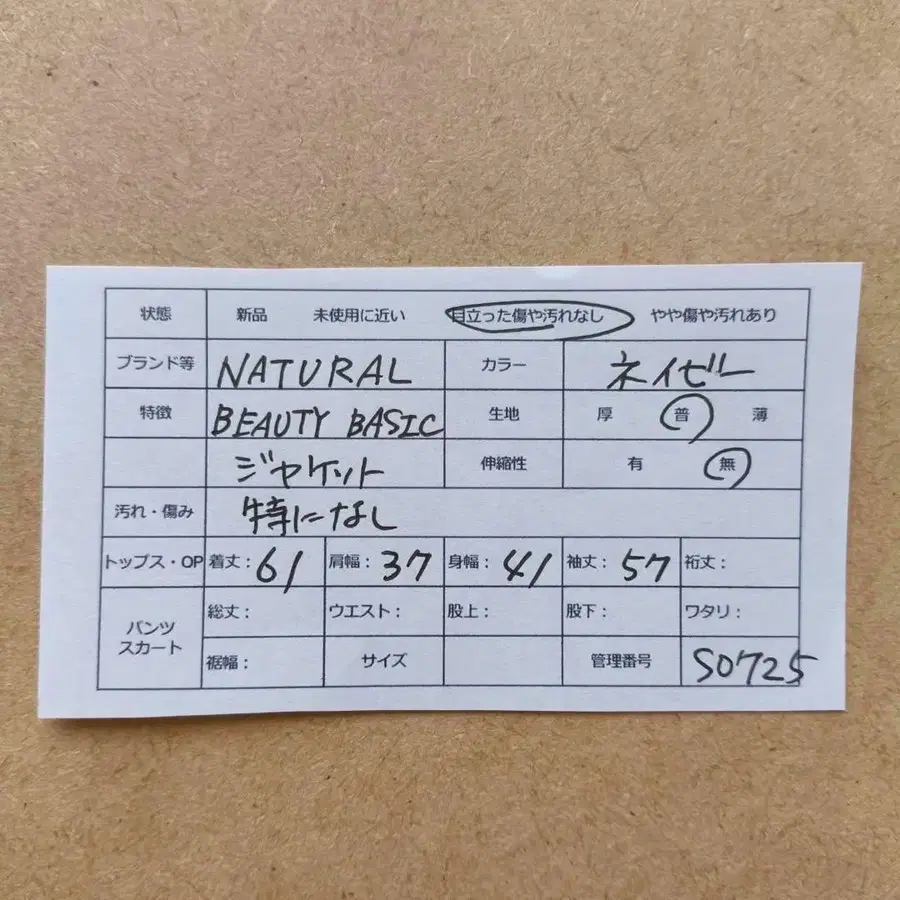 状態 新品 未使用に近い 目立った傷や汚れなし やや傷や汚れあり
ブランド等 NATURAL カラー ネイビー
特徴 BEAUTY BASIC 生地 厚 普 薄
ジャケット 伸縮性 有 無
汚れ・傷み 特になし
トップス・OP 着丈：61 肩幅：37 身幅：41 袖丈：57 裄丈：
パンツ スカート 総丈： ウエスト： 股上： 股下： ワタリ：
裾幅： サイズ 管理番号 S0725